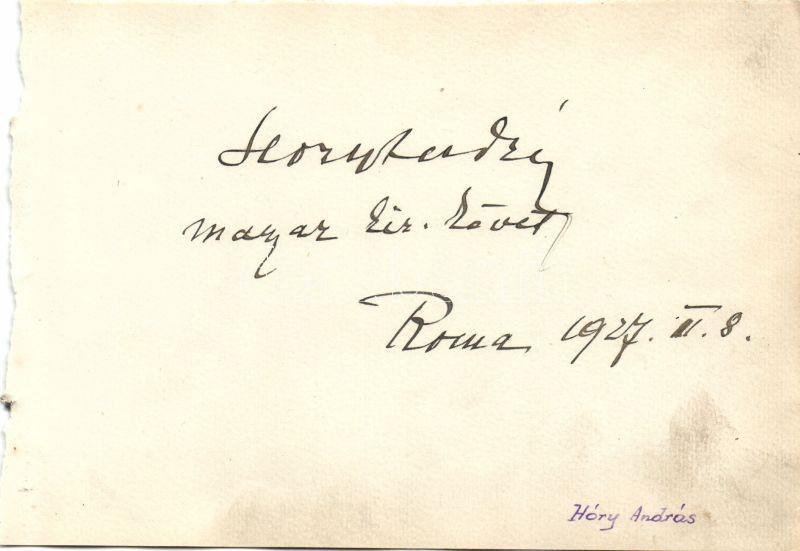 Hory András
magyar kir. követ
Roma 1927. II. 8.
Hóry András